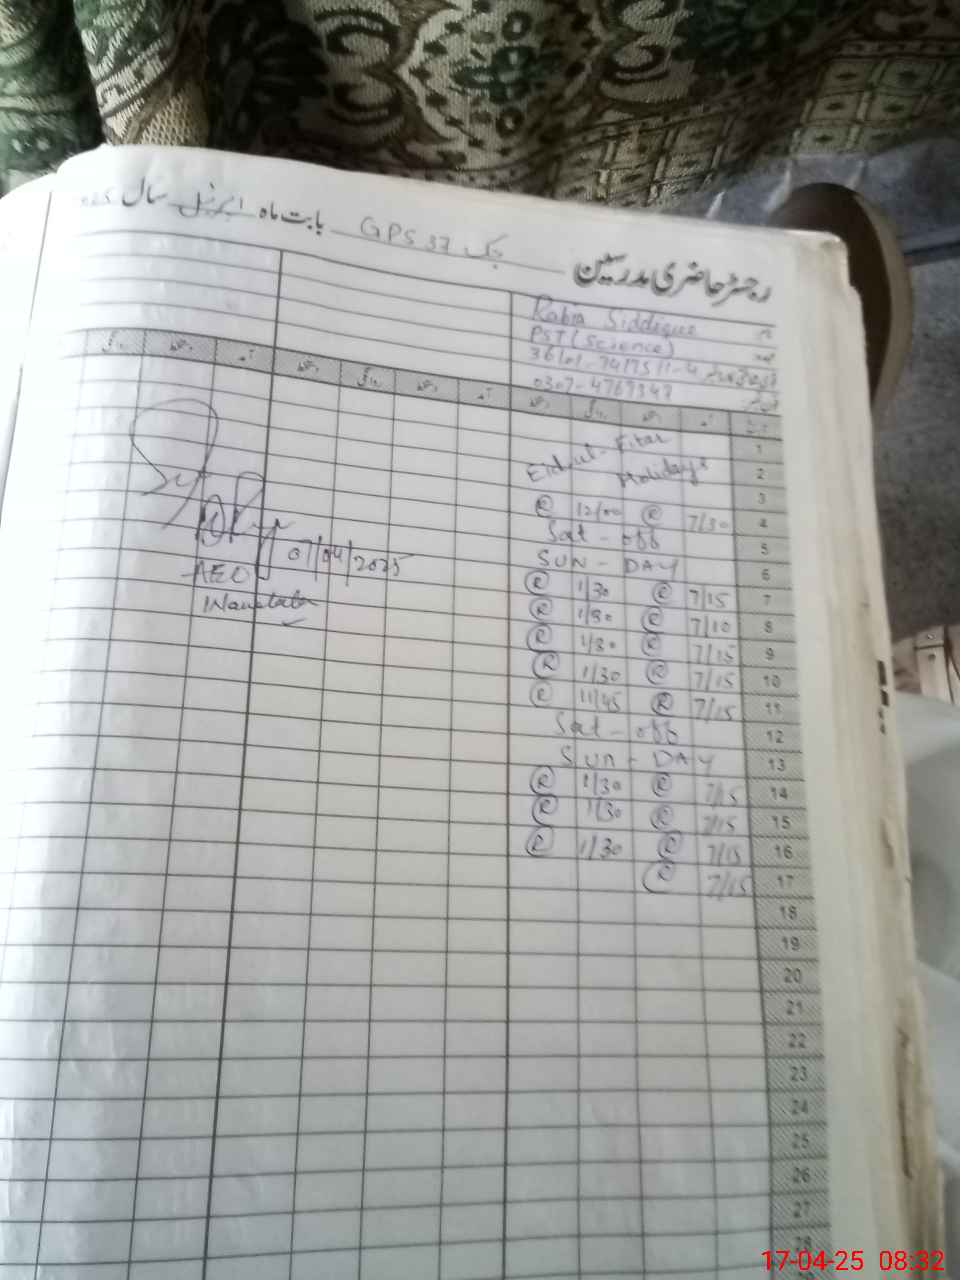 رجسٹر حاضری مدرسین GPS 37 چک بابت ماہ اپریل سال
نام Rabia Siddique
عہدہ PST (Science)
0307-4769347
آمد دستخط روانگی دستخط آمد دستخط روانگی دستخط آمد دستخط روانگی
1 Eid-ul-Fitar
2 Holidays
3
4 7/30 R 12/00 R
5 Sat - off
6 SUN - DAY
7 7/15 R 1/30 R
8 7/10 R 1/30 R
9 7/15 R 1/30 R
10 7/15 R 1/30 R
11 7/15 R 11/45 R
12 Sat - off
13 SUN - DAY
14 7/15 R 1/30 R
15 7/15 R 1/30 R
16 7/15 R 1/30 R
17 7/15 R
18
19
20
21
22
23
24
25
26
27
28
07/04/2025
AEO
17-04-25 08:32